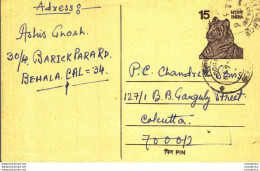 Adress :
Ashis Ghosh.
30/4, BARICK PARA RD.
BEHALA. CAL = 34.
15
भारत INDIA
P.C. Chandra
127/1 B.B. Ganguly Street
Calcutta.
700012
पिन PIN